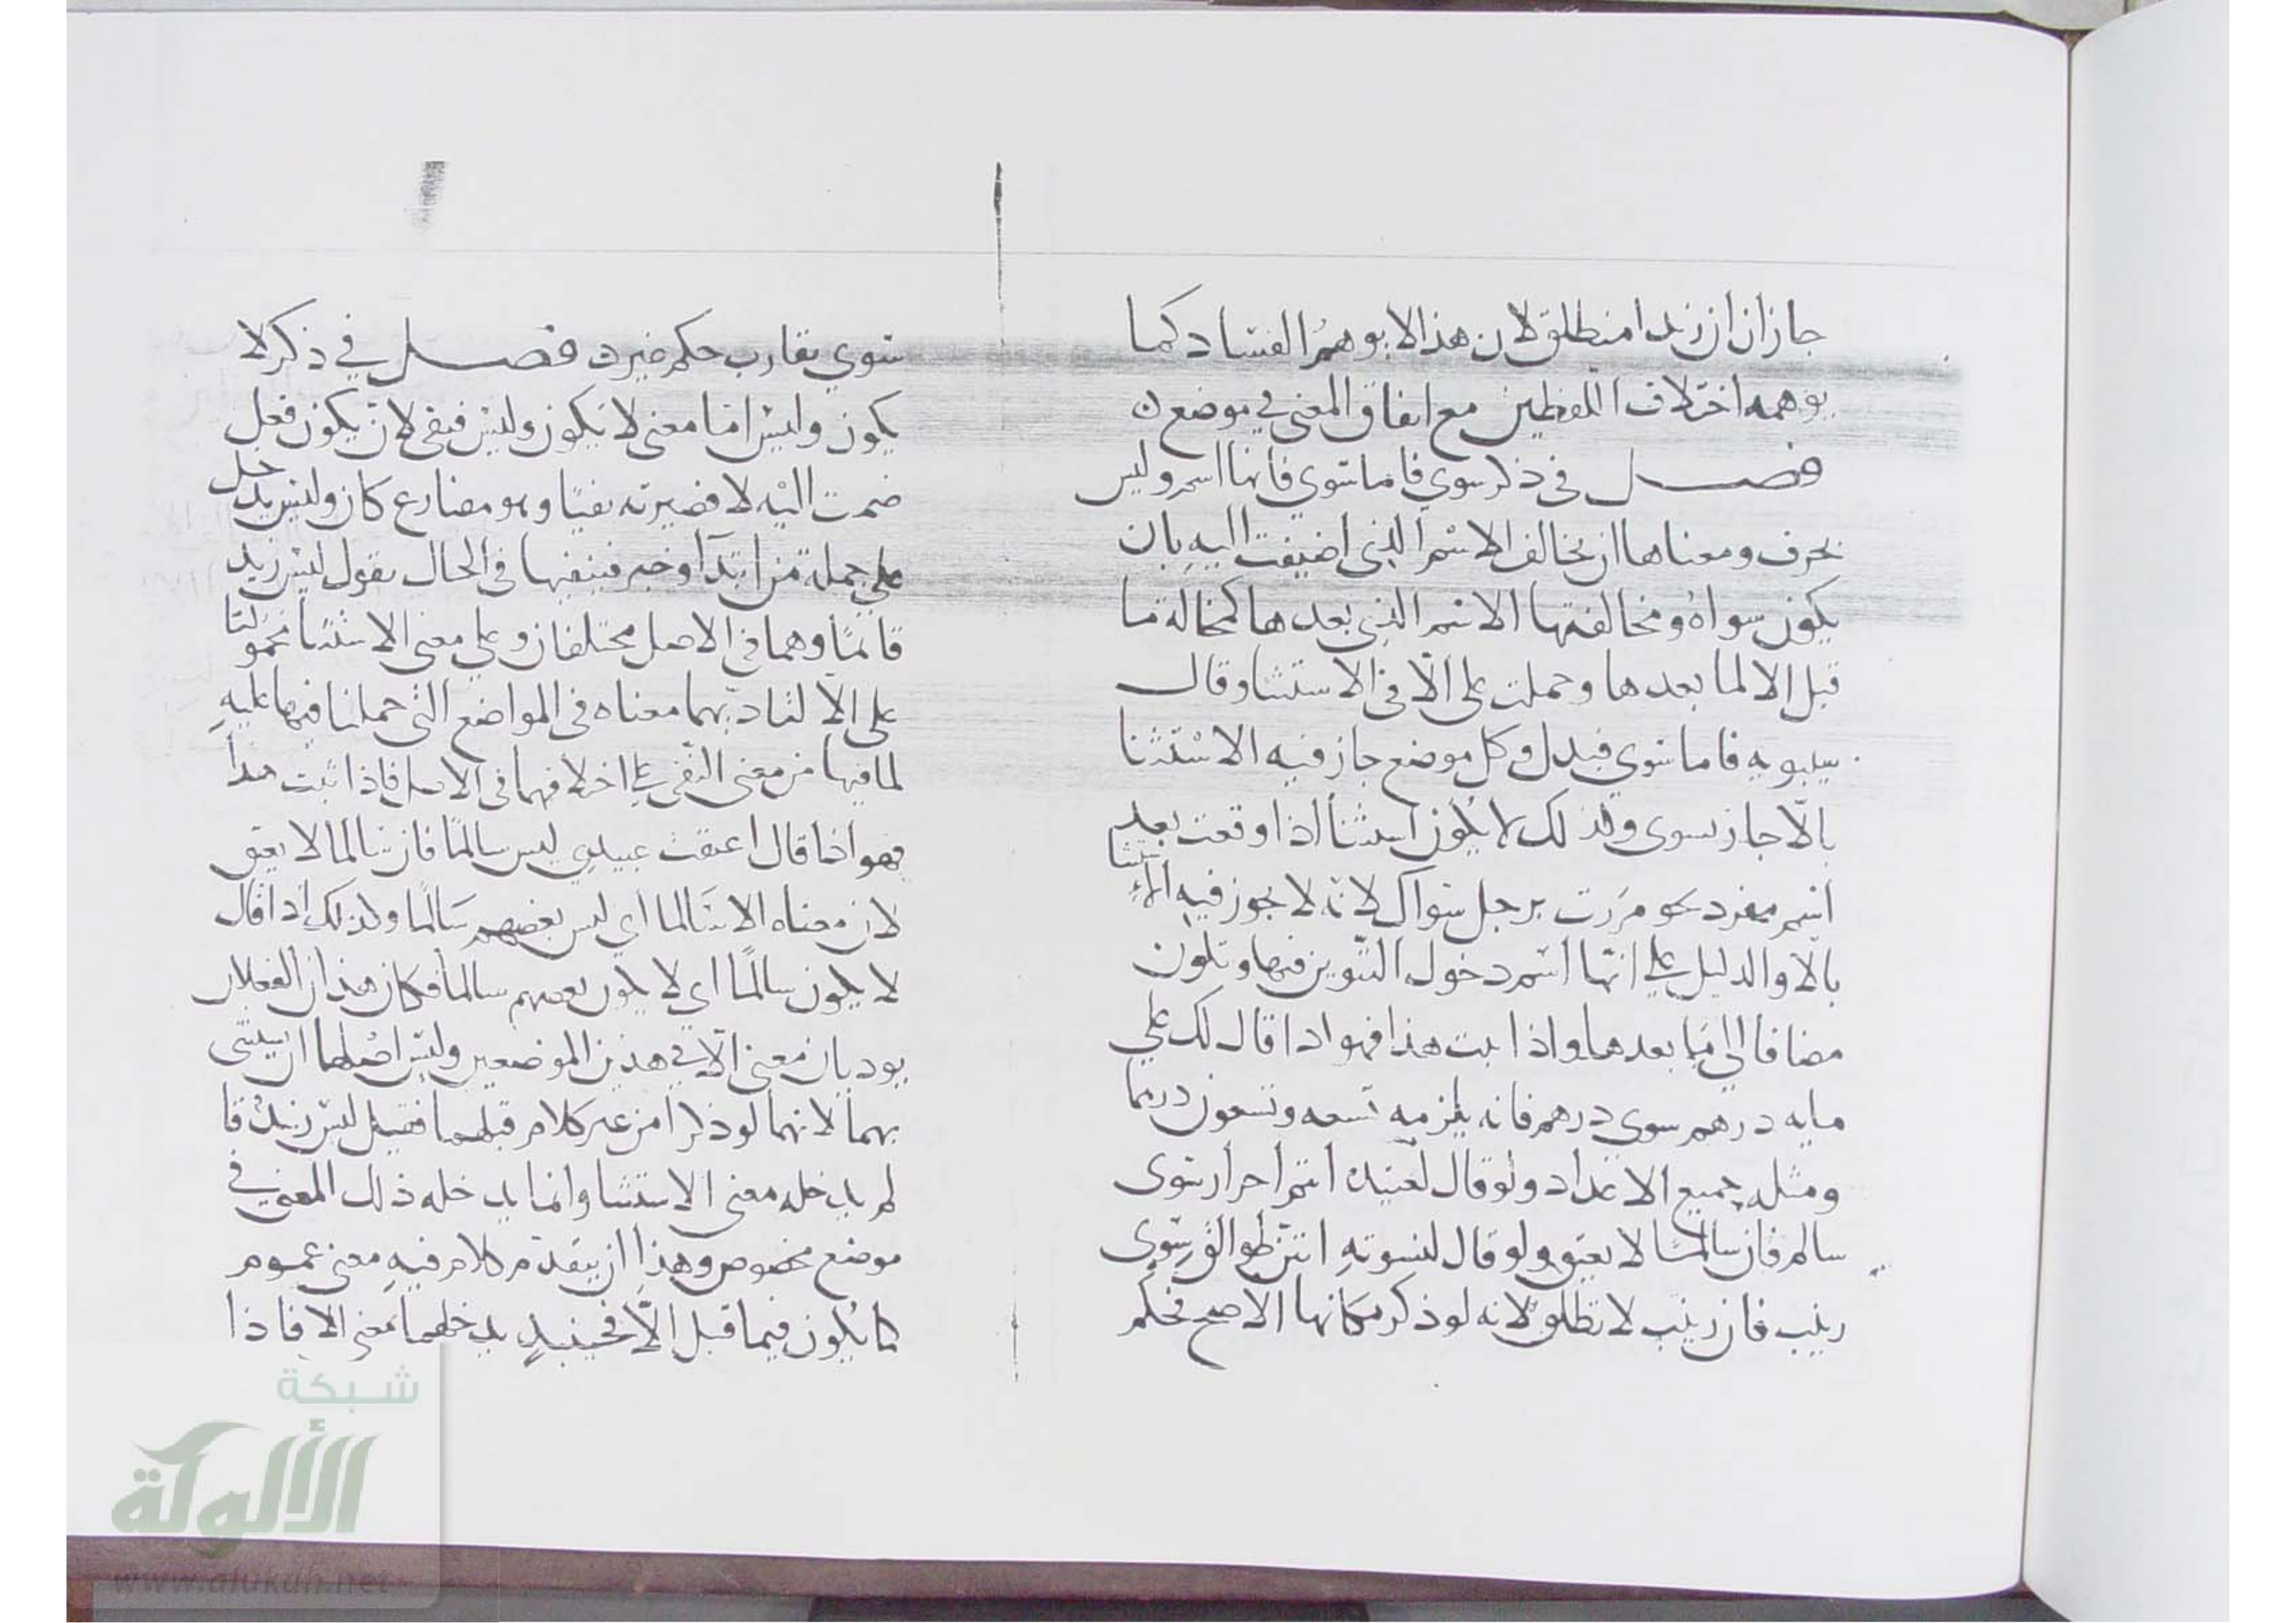 جاز ان ان زيدا منطلق لان هذا لا يوهم الفساد كما
يوهمه اختلاف اللفظين مع اتفاق المعنى في موضع ن
فصل في ذكر سوى فاما سوى فانها اسم وليس
بحرف ومعناها ان يخالف الاسم الذى اضيفت اليه بان
يكون سواه ومخالفتها الاسم الذى بعدها كمخالفة ما
قبل الا لما بعدها وحملت على الّا في الاستثنا وقال
سيبويه فاما سوى فبدل وكل موضع جاز فيه الاستثنا
بالّا جاز بسوى ولذلك لا يكون استثنا اذا وقعت بعد
اسم مفرد نحو مررت برجل سواك لانه لا يجوز فيه الاستثنا
بالّا والدليل على انها اسم دخول التنوين فيها وتكون
مضافا الى ما بعدها واذا ثبت هذا فهو اذا قال لك على
مايه درهم سوى درهم فانه يلزمه تسعه وتسعون درهما
ومثله جميع الاعداد ولو قال لعبيده انتم احرار سوى
سالم فان سالمًا لا يعتق ولو قال لنسوته انتن طوالق سوى
زينب فان زينب لا تطلق لانه لو ذكر مكانها الا صح فحكم
سوى يقارب حكم غير ن فصل في ذكر لا
يكون وليس اما معنى لا يكون وليس فبقى لان يكون فعل
ضمت اليه لا فصيرته نفيًا وهو مضارع كان وليس يدخل
على جملة من ابتدآ وخبر فينفيها في الحال يقول ليس زيد
قائمًا وهما في الاصل مختلفان وعلى معنى الاستثنا محمولتا
على الّا لتاديهما معناه في المواضع التى حملنا فيها عليه
لما فيها من معنى النفى على اختلافهما في الاصل فاذا ثبت هذا
فهو اذا قال اعتقت عبيدى ليس سالمًا فان سالما لا يعتق
لان معناه الا سالما أي ليس بعضهم سالمًا ولذلك اذا قال
لا يكون سالمًا اي لا يكون بعضهم سالمًا فكان هذان الفعلان
يوديان معنى الّا في هذين الموضعين وليس اصلهما ان يستثنى
بهما لانهما لو ذكرا من غير كلام قبلهما فقيل ليس زيدٌ قا
لم يدخله معنى الاستثنا وانما يدخله ذلك المعنى في
موضع مخصوص وهذا ان يتقدم كلام فيه معنى عموم
كما يكون فيما قبل الّا فحينيذٍ يدخلهما معنى الا فاذا
شبكة
الألوكة
www.alukah.net